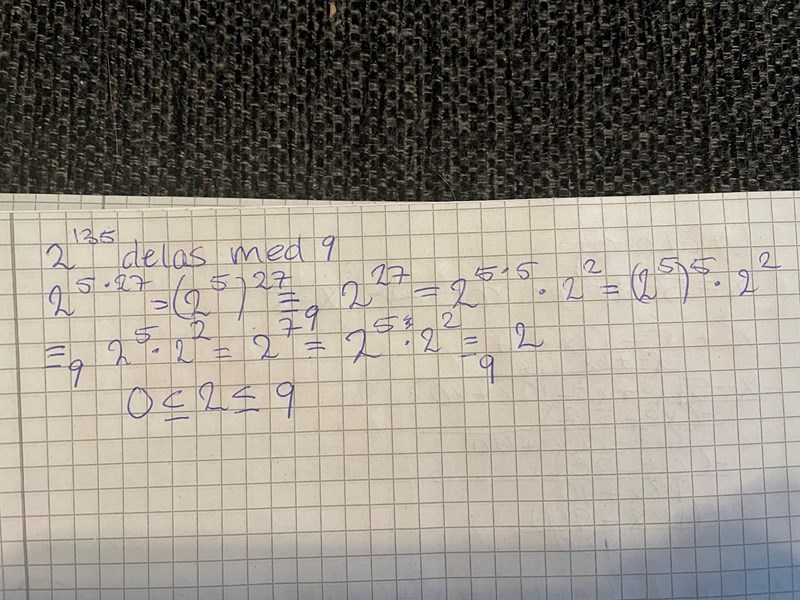 2^135 delas med 9
2^5·27 = (2^5)^27 ≡_9 2^27 = 2^5·5 · 2^2 = (2^5)^5 · 2^2
≡_9 2^5 · 2^2 = 2^7 = 2^5 · 2^2 ≡_9 2
0 ≤ 2 ≤ 9